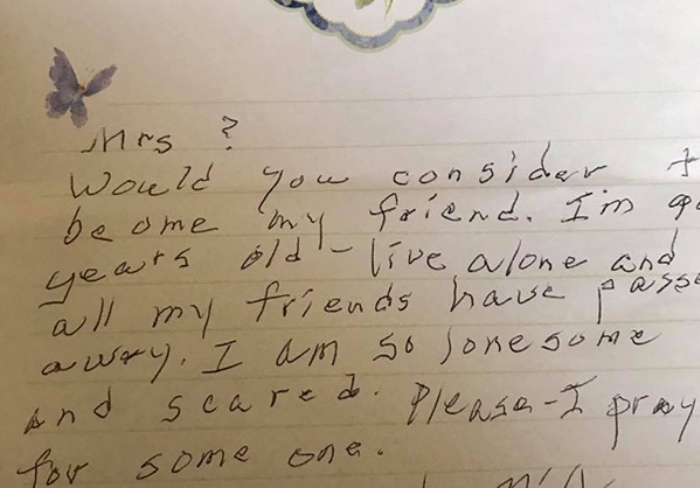 Mrs ?
Would you consider t
be ome my friend. I'm 9
years old - live alone and
all my friends have passe
away. I am so lonesome
and scared. Please - I pray
for some one.